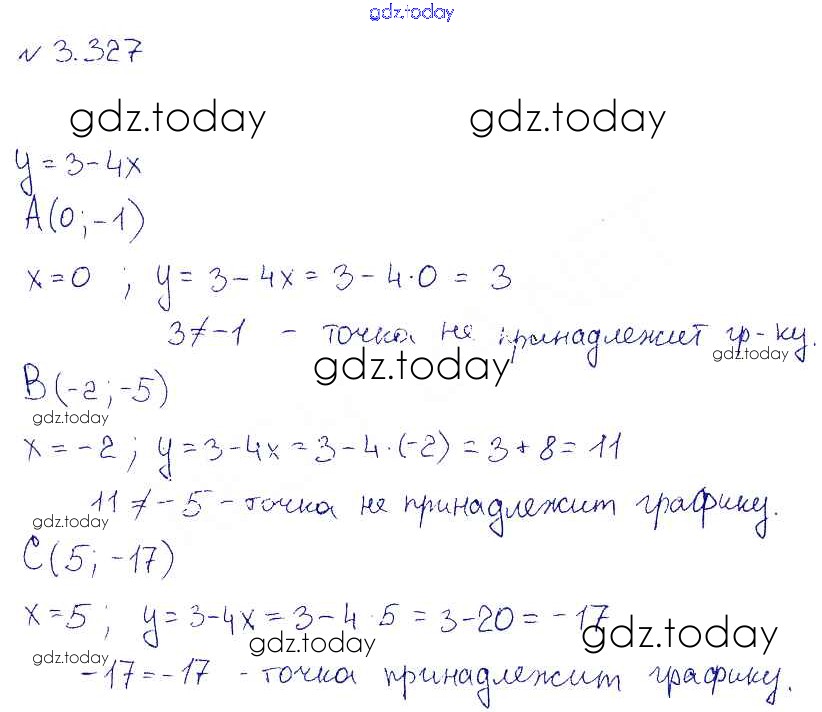 gdz.today
№ 3.327
gdz.today gdz.today
y = 3 - 4x
A(0; -1)
x = 0 ; y = 3 - 4x = 3 - 4·0 = 3
3 ≠ -1 - точка не принадлежит гр-ку.
gdz.today
gdz.today
B(-2; -5)
gdz.today
x = -2 ; y = 3 - 4x = 3 - 4·(-2) = 3 + 8 = 11
11 ≠ -5 - точка не принадлежит графику.
gdz.today
C(5; -17)
x = 5 ; y = 3 - 4x = 3 - 4·5 = 3 - 20 = -17
gdz.today gdz.today
gdz.today
-17 = -17 - точка принадлежит графику.